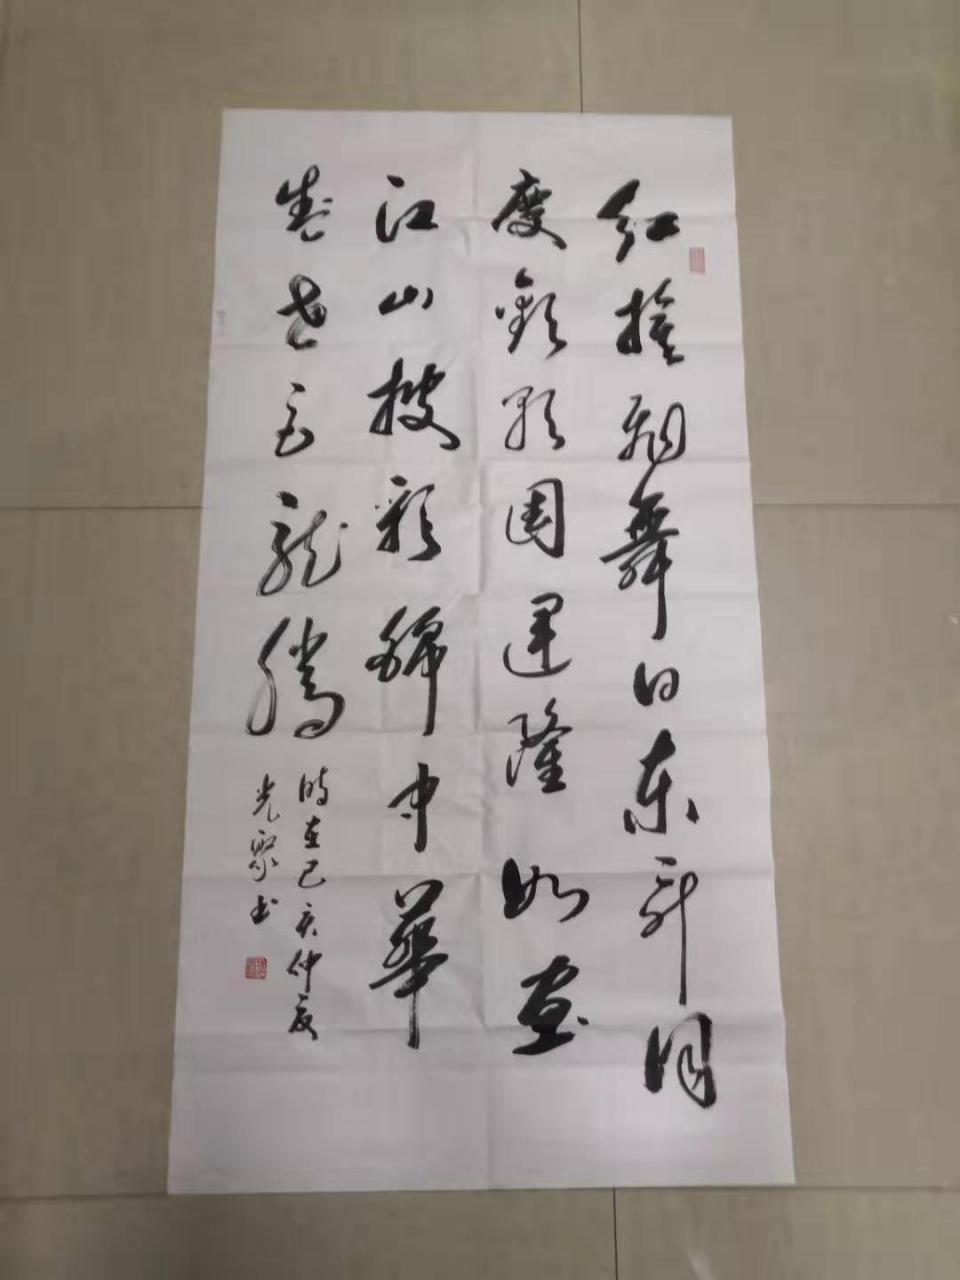 红旗翔舞日东升同
度欢歌国运隆如画
江山披彩锦中华
盛世巨龙腾
时在己亥仲夏
光聚书